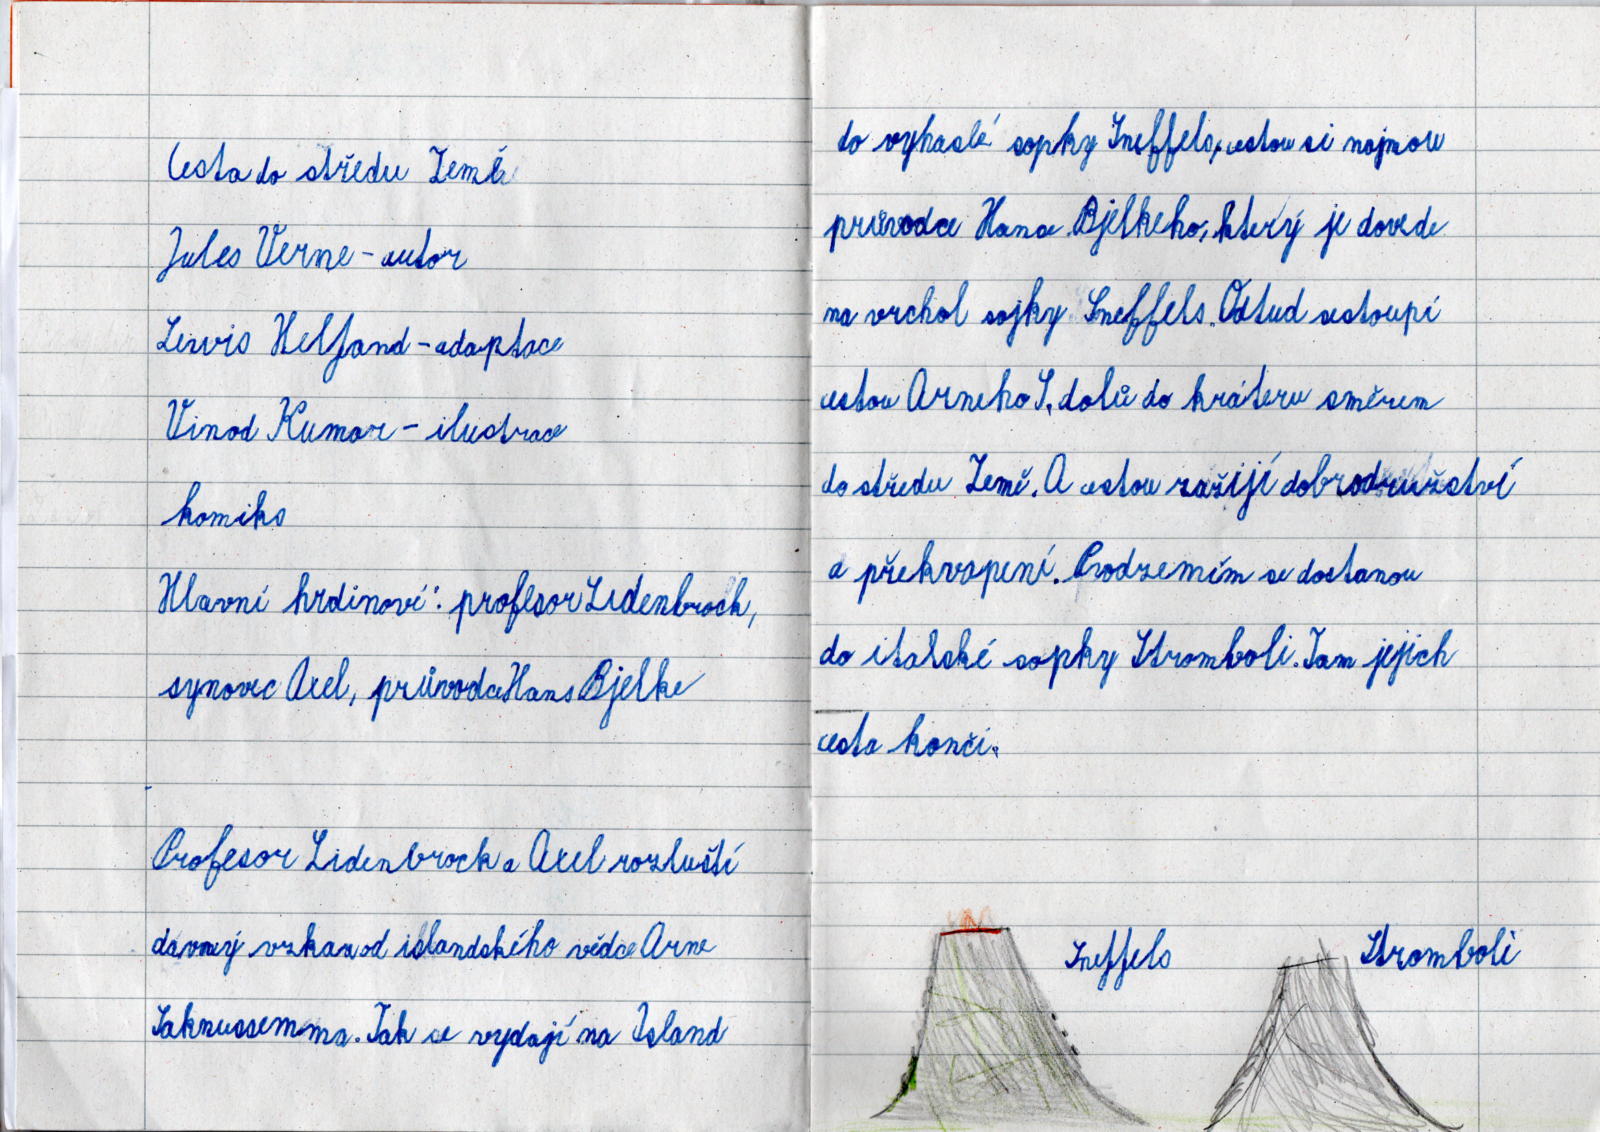 Cesta do středu Země
Jules Verne - autor
Lewis Helfand - adaptace
Vinod Kumar - ilustrace
komiks
Hlavní hrdinové: profesor Lidenbrock,
synovec Axel, průvodce Hans Bjelke
Profesor Lidenbrock a Axel rozluští
dávný vzkaz od islandského vědce Arne
Saknussemma. Tak se vydají na Island
do vyhaslé sopky Sneffels, cestou si najmou
průvodce Hanse Bjelkeho, který je dovede
na vrchol sopky Sneffels. Odtud sestoupí
cestou Arneho S. dolů do kráteru směrem
do středu Země. A cestou zažijí dobrodružství
a překvapení. Podzemím se dostanou
do italské sopky Stromboli. Tam jejich
cesta končí.
Sneffels
Stromboli